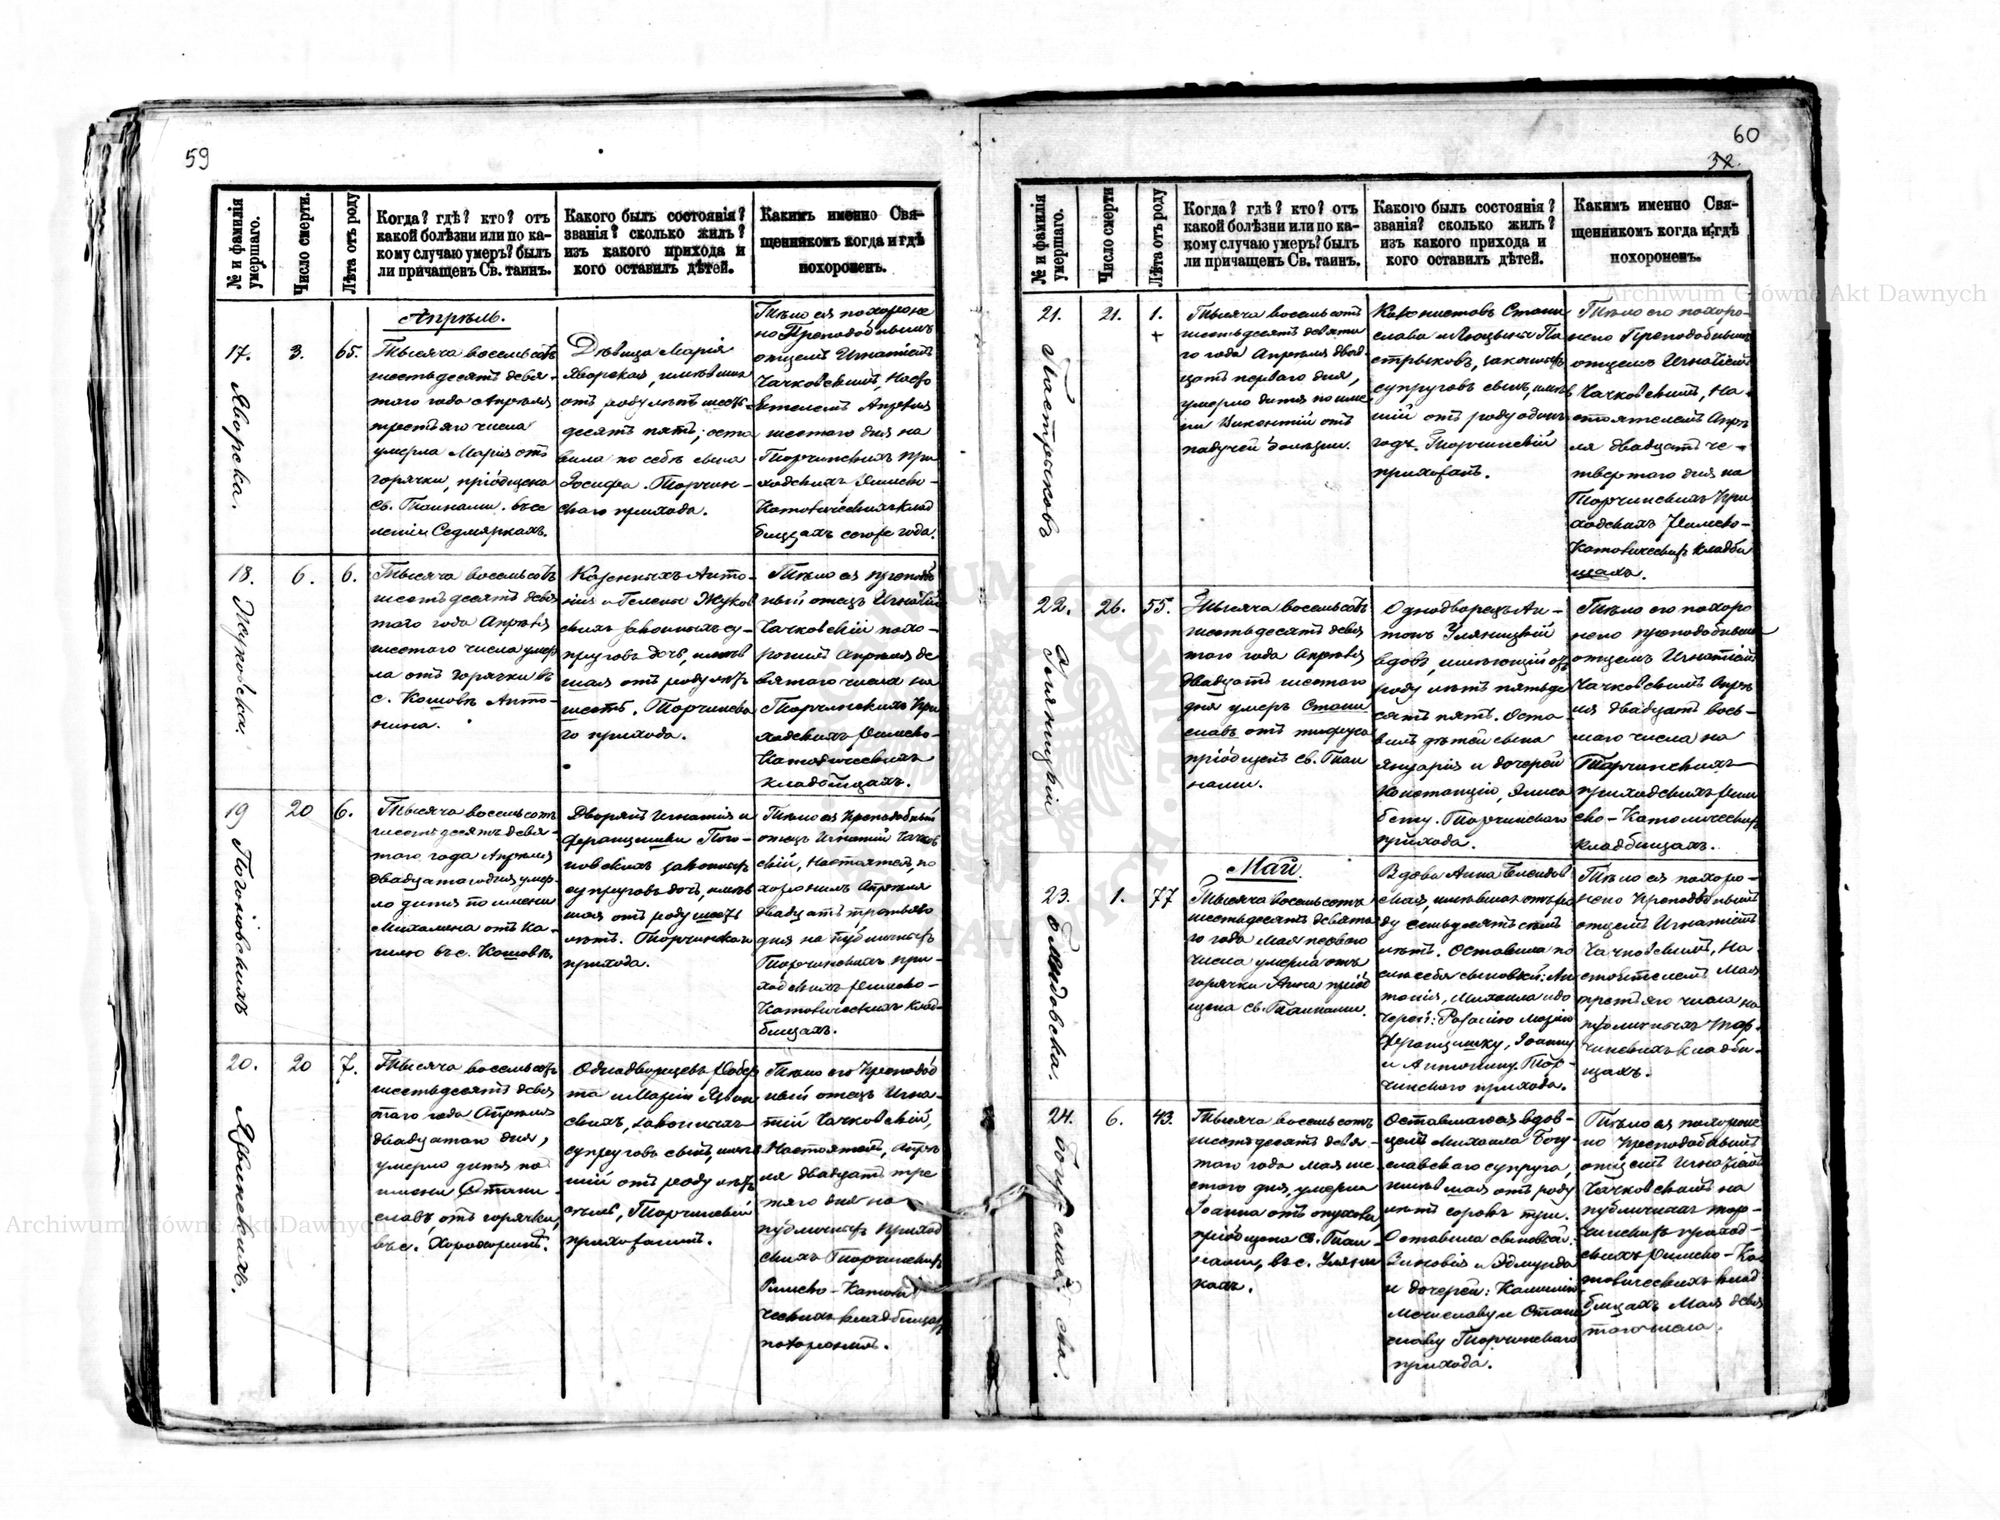 59
№ и фамилія умершаго.
Число смерти.
Лѣта отъ роду
Когда? гдѣ? кто? отъ
какой болѣзни или по ка-
кому случаю умеръ? былъ
ли причащенъ Св. таинъ.
Какого былъ состоянія?
званія? сколько жилъ?
изъ какого прихода и
кого оставилъ дѣтей.
Какимъ именно Свя-
щенникомъ когда и гдѣ
похороненъ.
17. Яворска.
3.
65.
Апрѣль.
Тысяча восемьсотъ
шестьдесятъ девя-
того года Апрѣля
третьяго числа
умерла Марія отъ
горячки, пріобщена
св. Тайнами. въ се
леніи Седмяркахъ.
Дѣвица Марія
Яворская, имѣвшая
отъ роду лѣтъ шесть-
десятъ пять; оста
вила по себѣ сына
Іосифа. Торчин-
скаго прихода.
Тѣло ея похороне
но Преподобнымъ
отцемъ Игнатіемъ
Чачковскимъ, Насто
ятелемъ Апрѣля
шестого дня на
Торчинскихъ при
ходскихъ Римско-
Католическихъ клад
бищахъ сего года.
18. Жуковска.
6.
6.
Тысяча восемьсотъ
шестьдесятъ девя
того года Апрѣля
шестого числа умер
ла отъ горячки въ
с. Кошовѣ Анто-
нина.
Антo-
нія и Гелены Жуков
скихъ законныхъ су-
пруговъ дочь, имѣв
шая отъ роду лѣтъ
шесть. Торчинска
го прихода.
Тѣло ея преподоб
ный отецъ Игнатій
Чачковскій похо-
ронилъ Апрѣля де
вятаго числа на
Торчинскихъ при
ходскихъ Римско-
Католическихъ
кладбищахъ.
19 Погоновскихъ
20
6.
Тысяча восемьсотъ
шестьдесятъ девя-
того года Апрѣля
двадцатаго дня умер-
ло дитя по имени
Михалина отъ ка-
шлю въ с. Кошовѣ.
Дворянъ Игнатія и
Францишки Пого-
новскихъ законныхъ
супруговъ дочь, имѣв
шая отъ роду шесть
лѣтъ. Торчинскаго
прихода.
Тѣло ея Преподобный
отецъ Игнатій Чачков
скій, Настоятель, по
хоронилъ Апрѣля
двадцать третьяго
дня на публичныхъ
Торчинскихъ при-
ходскихъ Римско-
Католическихъ клад-
бищахъ.
20.
20
7.
Тысяча восемьсотъ
шестьдесятъ девя
того года Апрѣля
двадцатаго дня,
умерло дитя по
имени Стани-
славъ, отъ горячки,
въ с.
Однодворцевъ Робер
та и Маріи
скихъ, законныхъ
супруговъ сынъ, имѣв
шій отъ роду лѣтъ
семь, Торчинскій
прихожанинъ.
Тѣло его Преподоб
ный отецъ Игна-
тій Чачковскій,
Настоятель, Апрѣ
ля двадцать тре
тяго дня на
публичныхъ приход
скихъ Торчинскихъ
Римско-Католи
ческихъ кладбищахъ
похоронилъ.
60
32.
№ и фамилія умершаго.
Число смерти
Лѣта отъ роду
Когда? гдѣ? кто? отъ
какой болѣзни или по ка-
кому случаю умеръ? былъ
ли причащенъ Св. таинъ.
Какого былъ состоянія?
званія? сколько жилъ?
изъ какого прихода и
кого оставилъ дѣтей.
Какимъ именно Свя-
щенникомъ когда и гдѣ
похороненъ.
21. Пастрыковъ
21.
1.
+
Тысяча восемьсотъ
шестьдесятъ девята
го года Апрѣля двад-
цать перваго дня,
умерло дитя по име
ни Викентій отъ
падучей болѣзни.
Стани
слава и Люцыны Па
стрыковъ, законныхъ
супруговъ сынъ, имѣв
шій отъ роду одинъ
годъ. Торчинскій
прихожанъ.
Тѣло его похоро-
нено Преподобнымъ
отцемъ Игнатіемъ
Чачковскимъ, На-
стоятелемъ Апрѣ
ля двадцать че-
твертого дня на
Торчинскихъ при
ходскихъ Римско-
Католическихъ кладби
щахъ.
22.
26.
55.
Тысяча восемьсотъ
шестьдесятъ девя
того года Апрѣля
двадцать шестого
дня умеръ Стани
славъ отъ тифуса
пріобщенъ св. Тай
нами.
Однодворецъ Ан-
тонъ Уляницкій
вдовъ, имѣющій отъ
роду лѣтъ пятьде
сятъ пять. Оста
вилъ дѣтей сына
Януарія и дочерей
Констанцію, Элиса
бету. Торчинскаго
прихода.
Тѣло его похоро
нено преподобнымъ
отцемъ Игнатіемъ
Чачковскимъ Апрѣ
ля двадцать вось-
маго числа на
Торчинскихъ
приходскихъ Рим
ско-Католическихъ
кладбищахъ.
23.
1.
77
Май.
Тысяча восемьсотъ
шестьдесятъ девята
го года Мая перваго
числа умерла отъ
горячки Анна пріоб
щена св. Тайнами.
Вдова Анна
ская, имѣвшая отъ ро
ду семьдесятъ семь
лѣтъ. Оставила по
слѣ себя сыновей: Ан
тонія, Михаила и до
черей: Розалію Марію
Францишку, Іоанну
и Антонину. Тор-
чинскаго прихода.
Тѣло ея похоро-
нено Преподобнымъ
отцемъ Игнатіемъ
Чачковскимъ, На-
стоятелемъ Мая
третьяго числа на
публичныхъ Тор-
чинскихъ кладби-
щахъ.
24. Богуславска.
6.
43.
Тысяча восемьсотъ
шестьдесятъ девя-
того года мая ше
стого дня, умерла
Іоанна отъ опухоли,
пріобщена св. Тай-
нами, въ с. Уляни
кахъ.
Оставшагося вдов-
цемъ Михаила Богу
славскаго супруга,
имѣвшая отъ роду
лѣтъ сорокъ три.
Оставила сыновей:
Зиновія и Эдмунда
и дочерей:
Мечиславу и Стани
славу Торчинскаго
прихода.
Тѣло ея похороне
но Преподобнымъ
отцемъ Игнатіемъ
Чачковскимъ на
публичныхъ Тор-
чинскихъ приход-
скихъ Римско-Ка
толическихъ клад
бищахъ Мая девя
того числа.
Archiwum Główne Akt Dawnych
Archiwum Główne Akt Dawnych